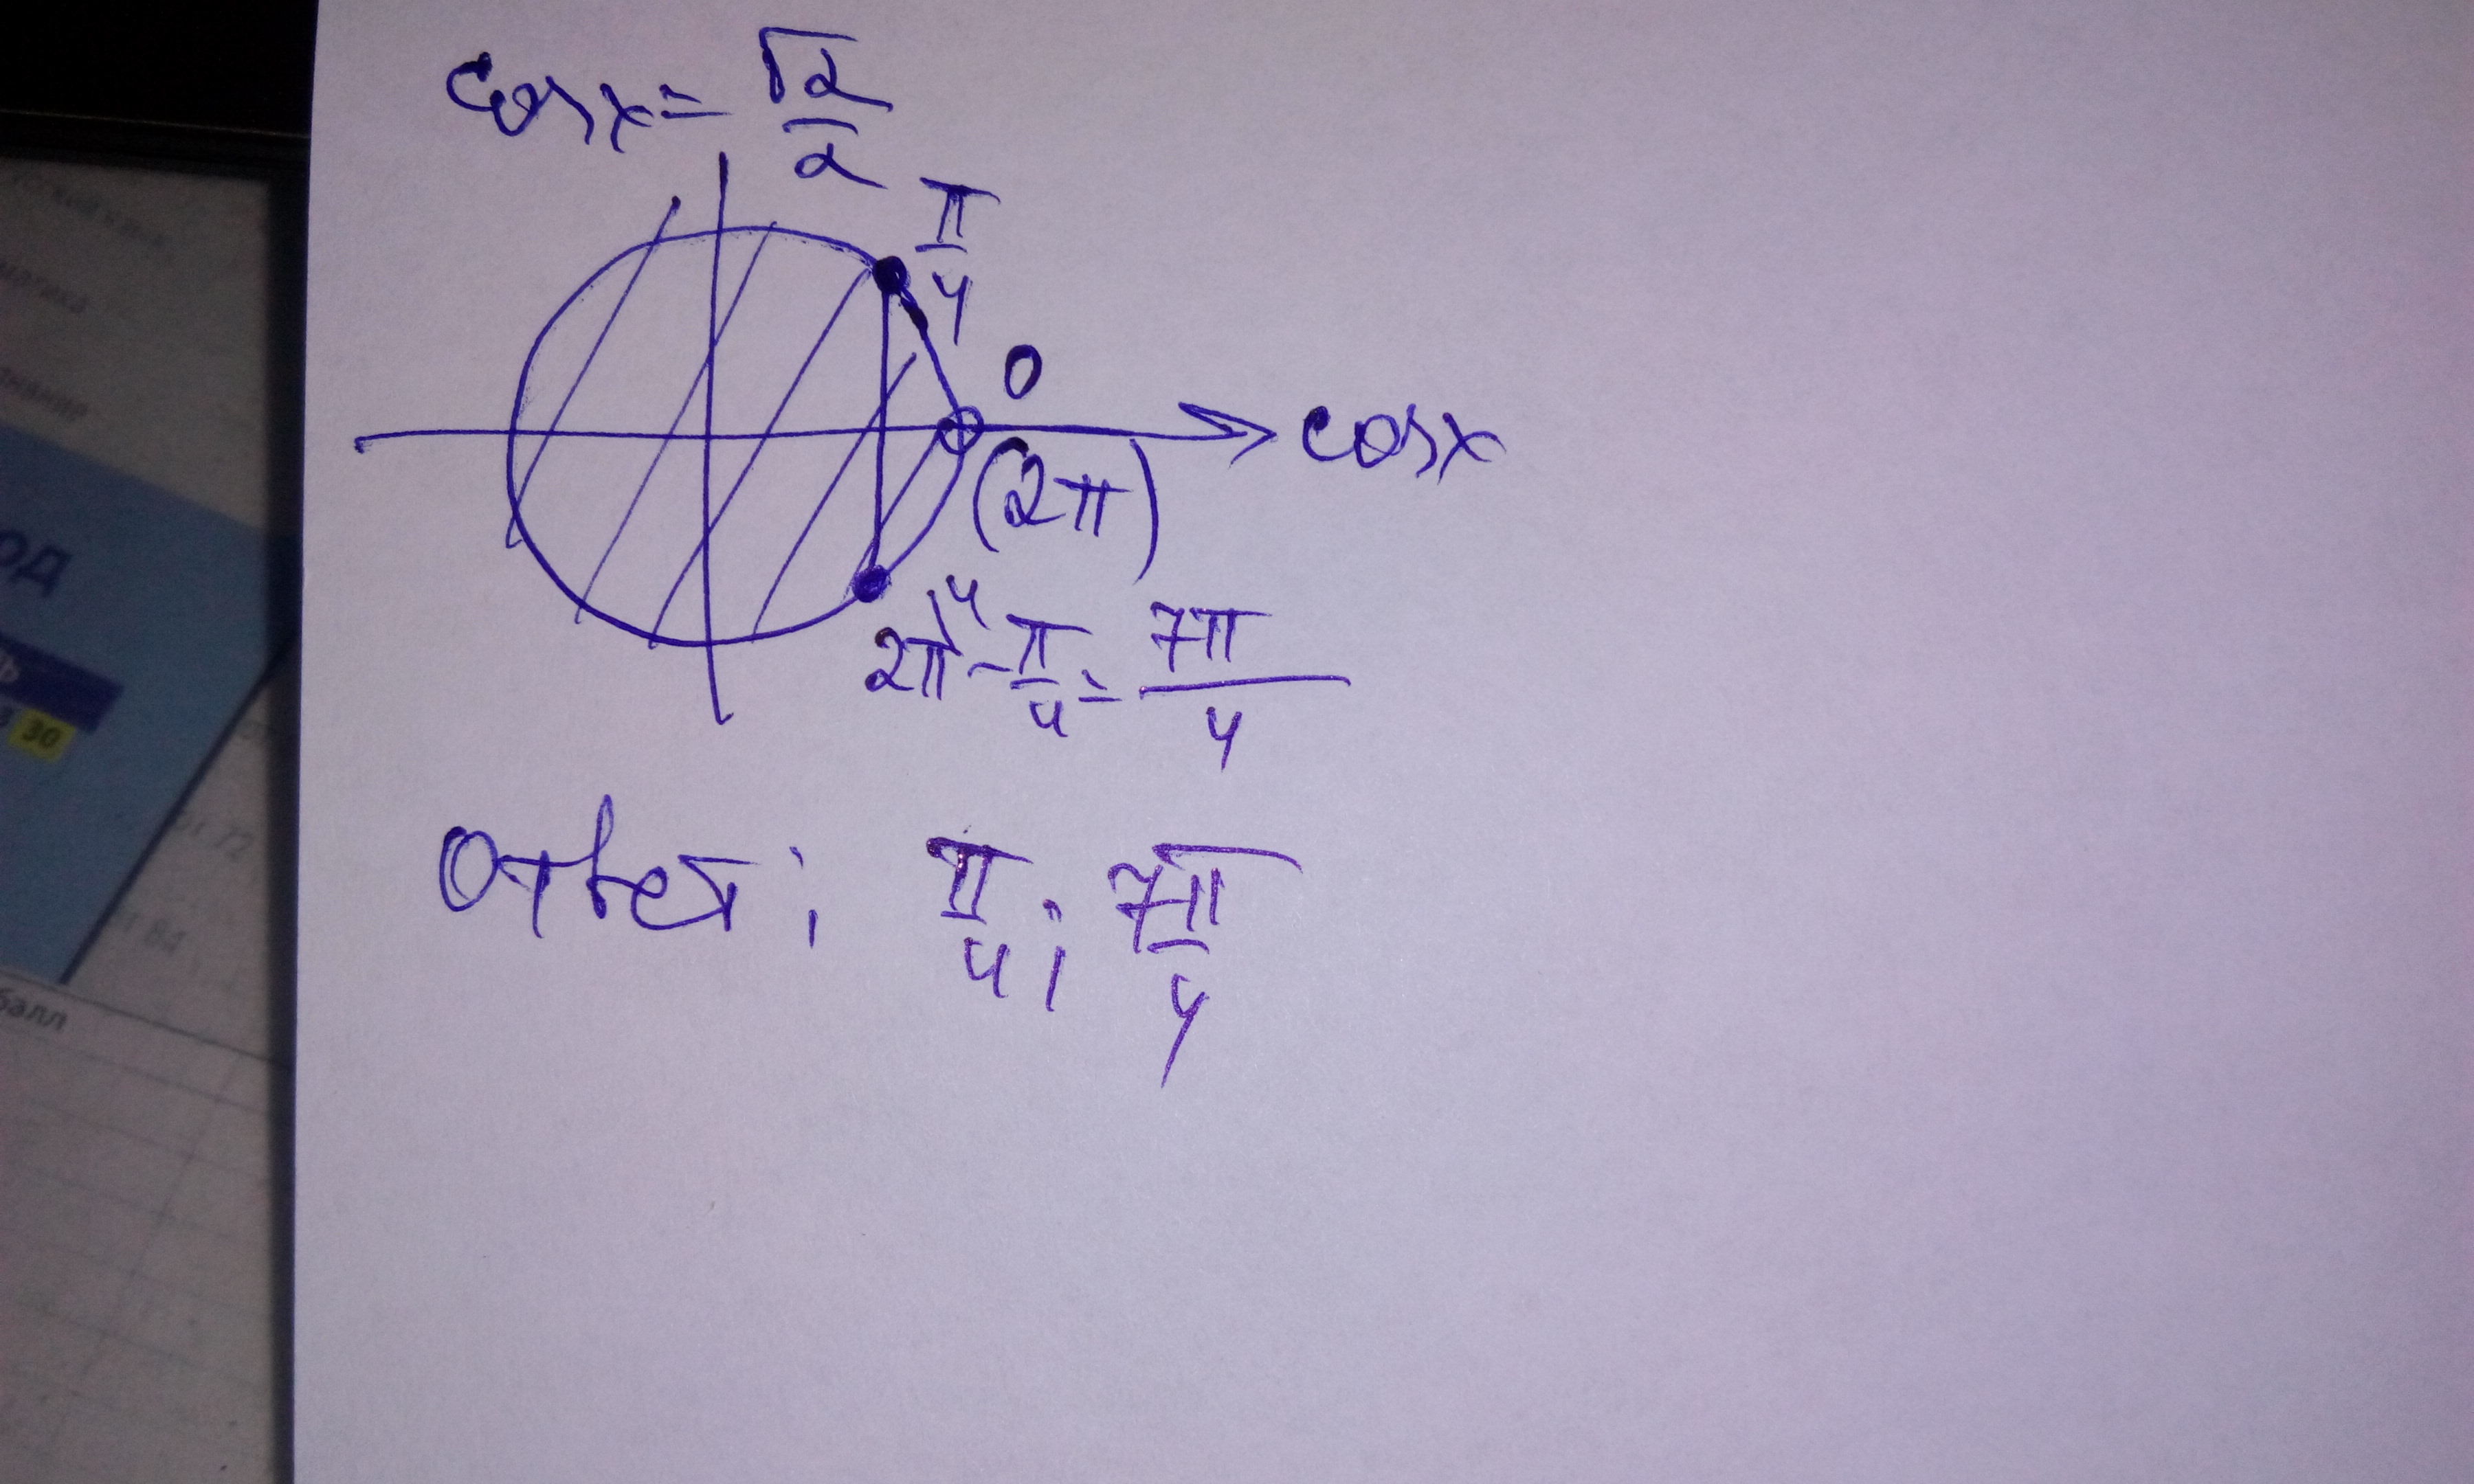 cos x = √2/2
π/4
0
cos x
(2π)
2π⁴ - π/4 = 7π/4
Ответ: π/4; 7π/4
од
30
72
балл